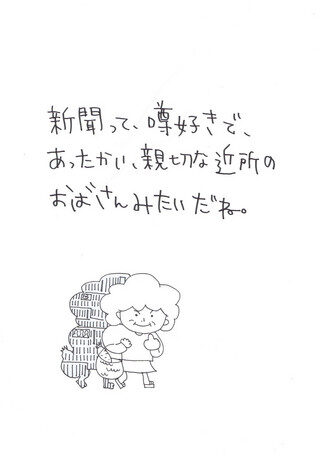 新聞って、噂好きで、
あったかい、親切な近所の
おばさんみたいだね。